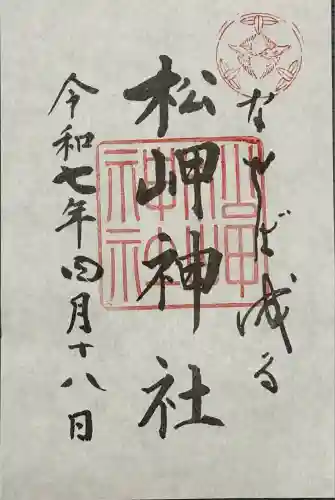 なせば成る
松岬神社
令和七年四月十八日
松岬神社